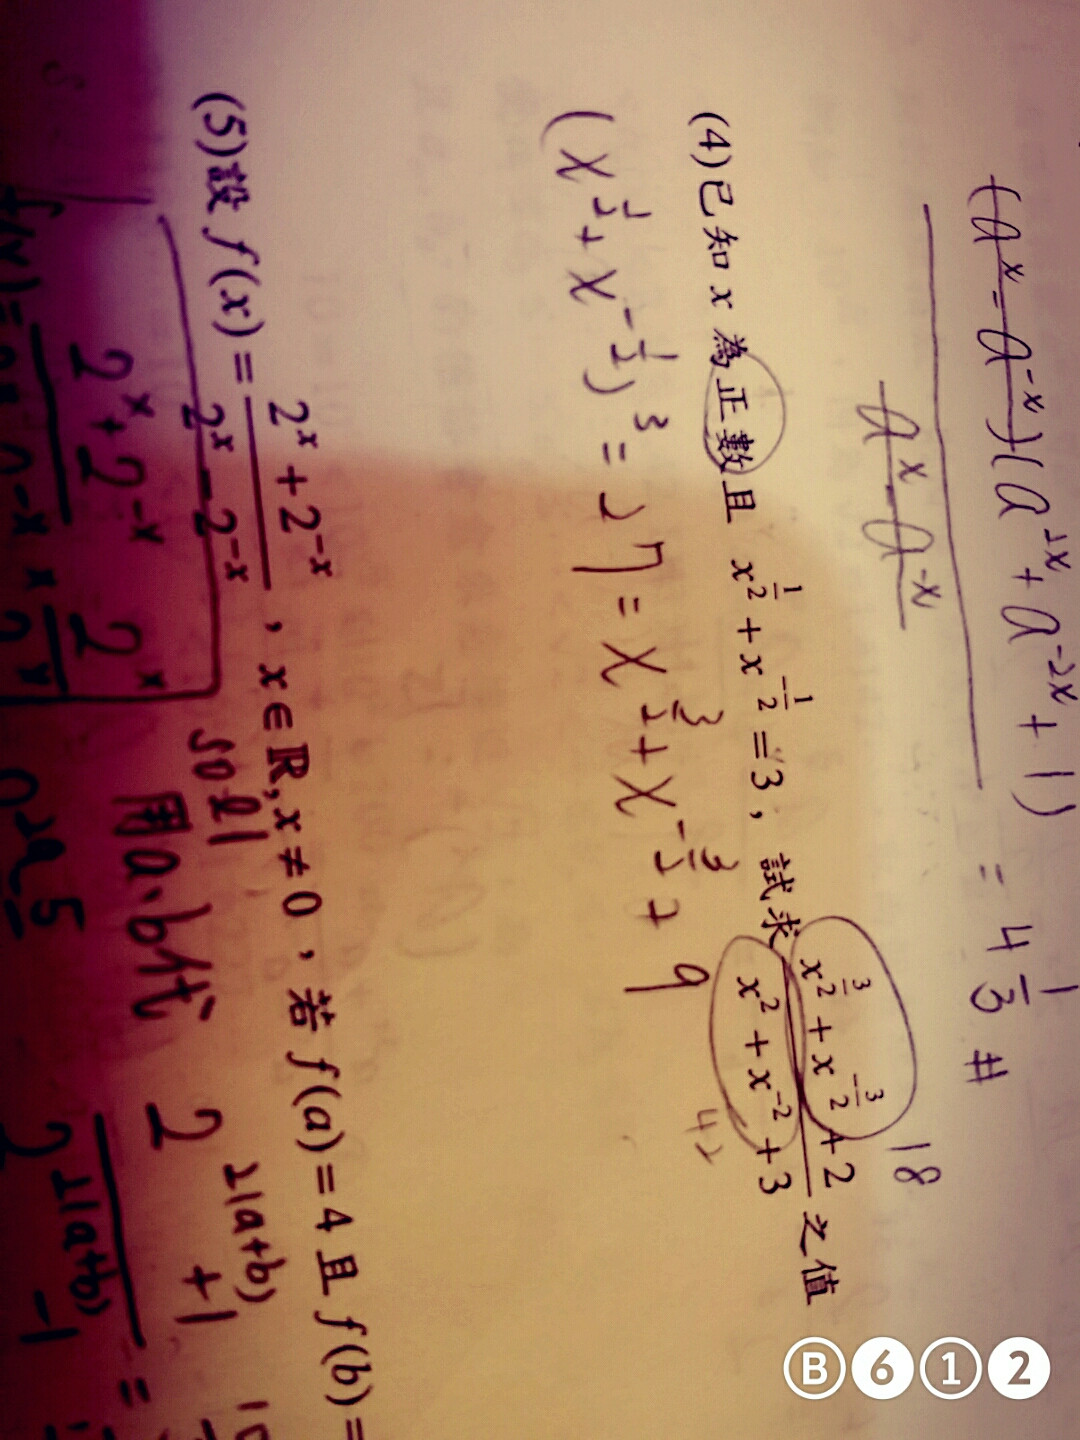 (a^x - a^{-x})(a^{2x} + a^{-2x} + 1)
a^x - a^{-x}
= 4 1/3 #
(4)已知 x 為正數且 x^{1/2} + x^{-1/2} = 3，試求 (x^{3/2} + x^{-3/2} + 2)/(x^2 + x^{-2} + 3) 之值
18
(x^{1/2} + x^{-1/2})^3 = 27 = x^{3/2} + x^{-3/2} + 9
(5)設 f(x) = (2^x + 2^{-x})/(2^x - 2^{-x})，x∈ℝ, x≠0，若 f(a) = 4 且 f(b) =
sol1
2^x + 2^{-x} 2^x
用a.b代
2^{2(a+b)} + 1
2^{2(a+b)} - 1
=
B612